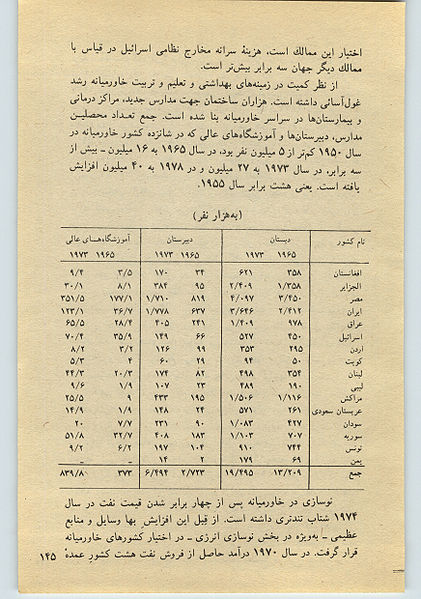 اختیار این ممالك است، هزینهٔ سرانه مخارج نظامی اسرائیل در قیاس با
ممالك دیگر جهان سه برابر بیش‌تر است.
از نظر كمیت در زمینه‌های بهداشتی و تعلیم و تربیت خاورمیانه رشد
غول‌آسائی داشته است. هزاران ساختمان جهت مدارس جدید، مراكز درمانی
و بیمارستان‌ها در سراسر خاورمیانه بنا شده است. جمع تعداد محصلیـن
مدارس، دبیرستان‌ها و آموزشگاه‌های عالی كه در شانزده كشور خاورمیانه در
سال ۱۹۵۰ كم‌تر از ۵ میلیون نفر بود، در سال ۱۹۶۵ به ۱۶ میلیون ـ بیش از
سه برابر، در سال ۱۹۷۳ به ۲۷ میلیون و در ۱۹۷۸ به ۴۰ میلیون افزایش
یافته است. یعنی هشت برابر سال ۱۹۵۵.
(به‌هزار نفر)
نام كشور دبستان دبیرستان آموزشگاه‌هـای عالی
۱۹۶۵ ۱۹۷۳ ۱۹۶۵ ۱۹۷۳ ۱۹۶۵ ۱۹۷۳
افغانستان ۳۵۸ ۶۲۱ ۳۴ ۱۷۰ ۳/۵ ۹/۴
الجزایر ۱/۳۵۸ ۲/۴۰۹ ۹۵ ۳۸۴ ۸/۱ ۳۰/۱
مصر ۳/۴۵۰ ۴/۰۹۷ ۸۱۹ ۱/۷۱۰ ۱۷۷/۱ ۳۵۱/۵
ایران ۲/۴۱۲ ۳/۶۴۶ ۶۳۷ ۱/۷۷۸ ۳۶/۷ ۱۲۳/۱
عراق ۹۷۸ ۱/۴۰۹ ۲۴۱ ۴۰۵ ۲۸/۴ ۶۵/۵
اسرائیل ۴۵۰ ۵۲۷ ۶۶ ۱۴۹ ۳۵/۹ ۷۰/۴
اردن ۲۹۵ ۳۵۳ ۹۹ ۱۲۶ ۳/۲ ۸/۲
كویت ۵۰ ۹۴ ۲۹ ۶۰ ۴ ۵/۳
لبنان ۳۵۴ ۴۹۸ ۸۲ ۱۷۴ ۲۰/۳ ۴۴/۳
لیبی ۱۹۰ ۴۸۹ ۲۳ ۱۰۷ ۱/۹ ۹/۶
مراكش ۱/۱۱۶ ۱/۵۰۶ ۱۹۵ ۴۳۳ ۹ ۲۵/۵
عربستان سعودی ۲۶۱ ۵۷۱ ۲۴ ۱۴۸ ۱/۹ ۱۴/۹
سودان ۴۲۷ ۱/۰۸۳ ۹۰ ۲۳۱ ۷/۷ ۲۰
سوریه ۷۰۷ ۱/۱۰۳ ۱۸۳ ۴۰۸ ۳۲/۷ ۵۱/۸
تونس ۷۴۴ ۹۱۰ ۱۰۴ ۱۹۷ ۶/۲ ۹/۲
یمن ۶۹ ۱۷۹ ۲ ۱۴ ـ ـ
جمع ۱۳/۲۰۹ ۱۹/۴۹۵ ۲/۷۲۳ ۶/۴۹۴ ۳۷۳ ۸۳۹/۸
نوسازی در خاورمیانه پس از چهار برابر شدن قیمت نفت در سال
۱۹۷۴ شتاب تندتری داشته است. از قِبل این افزایش بها وسایل و منابع
عظیمی ـ به‌ویژه در بخش نوسازی انرژی ـ در اختیار كشورهای خاورمیانه
قرار گرفت. در سال ۱۹۷۰ درآمد حاصل از فروش نفت هشت كشورِ عمدهٔ
۱۴۵